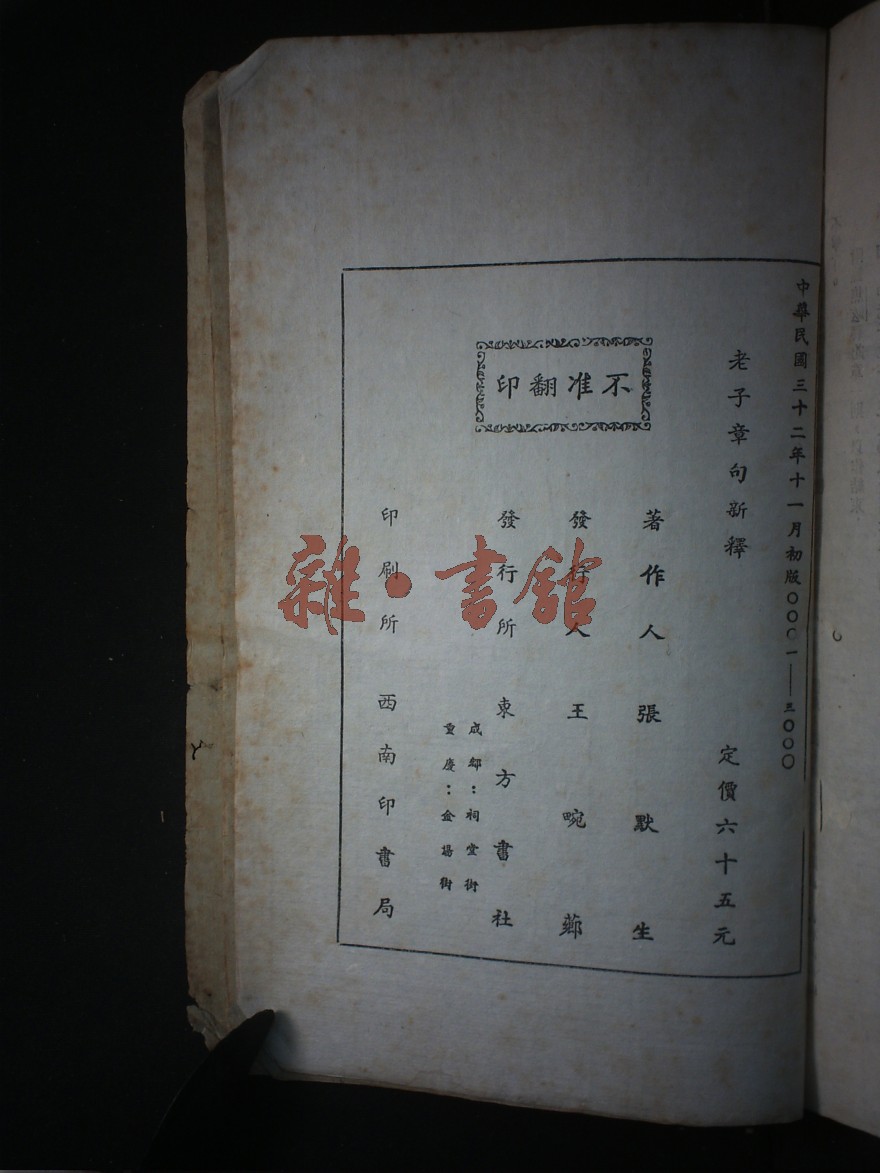 中華民國三十二年十一月初版〇〇〇一——三〇〇〇
老子章句新釋 定價六十五元
不准翻印
著作人 張默生
發行人 王畹薌
發行所 東方書社
成都：祠堂街
重慶：金湯街
印刷所 西南印書局
雜·書館